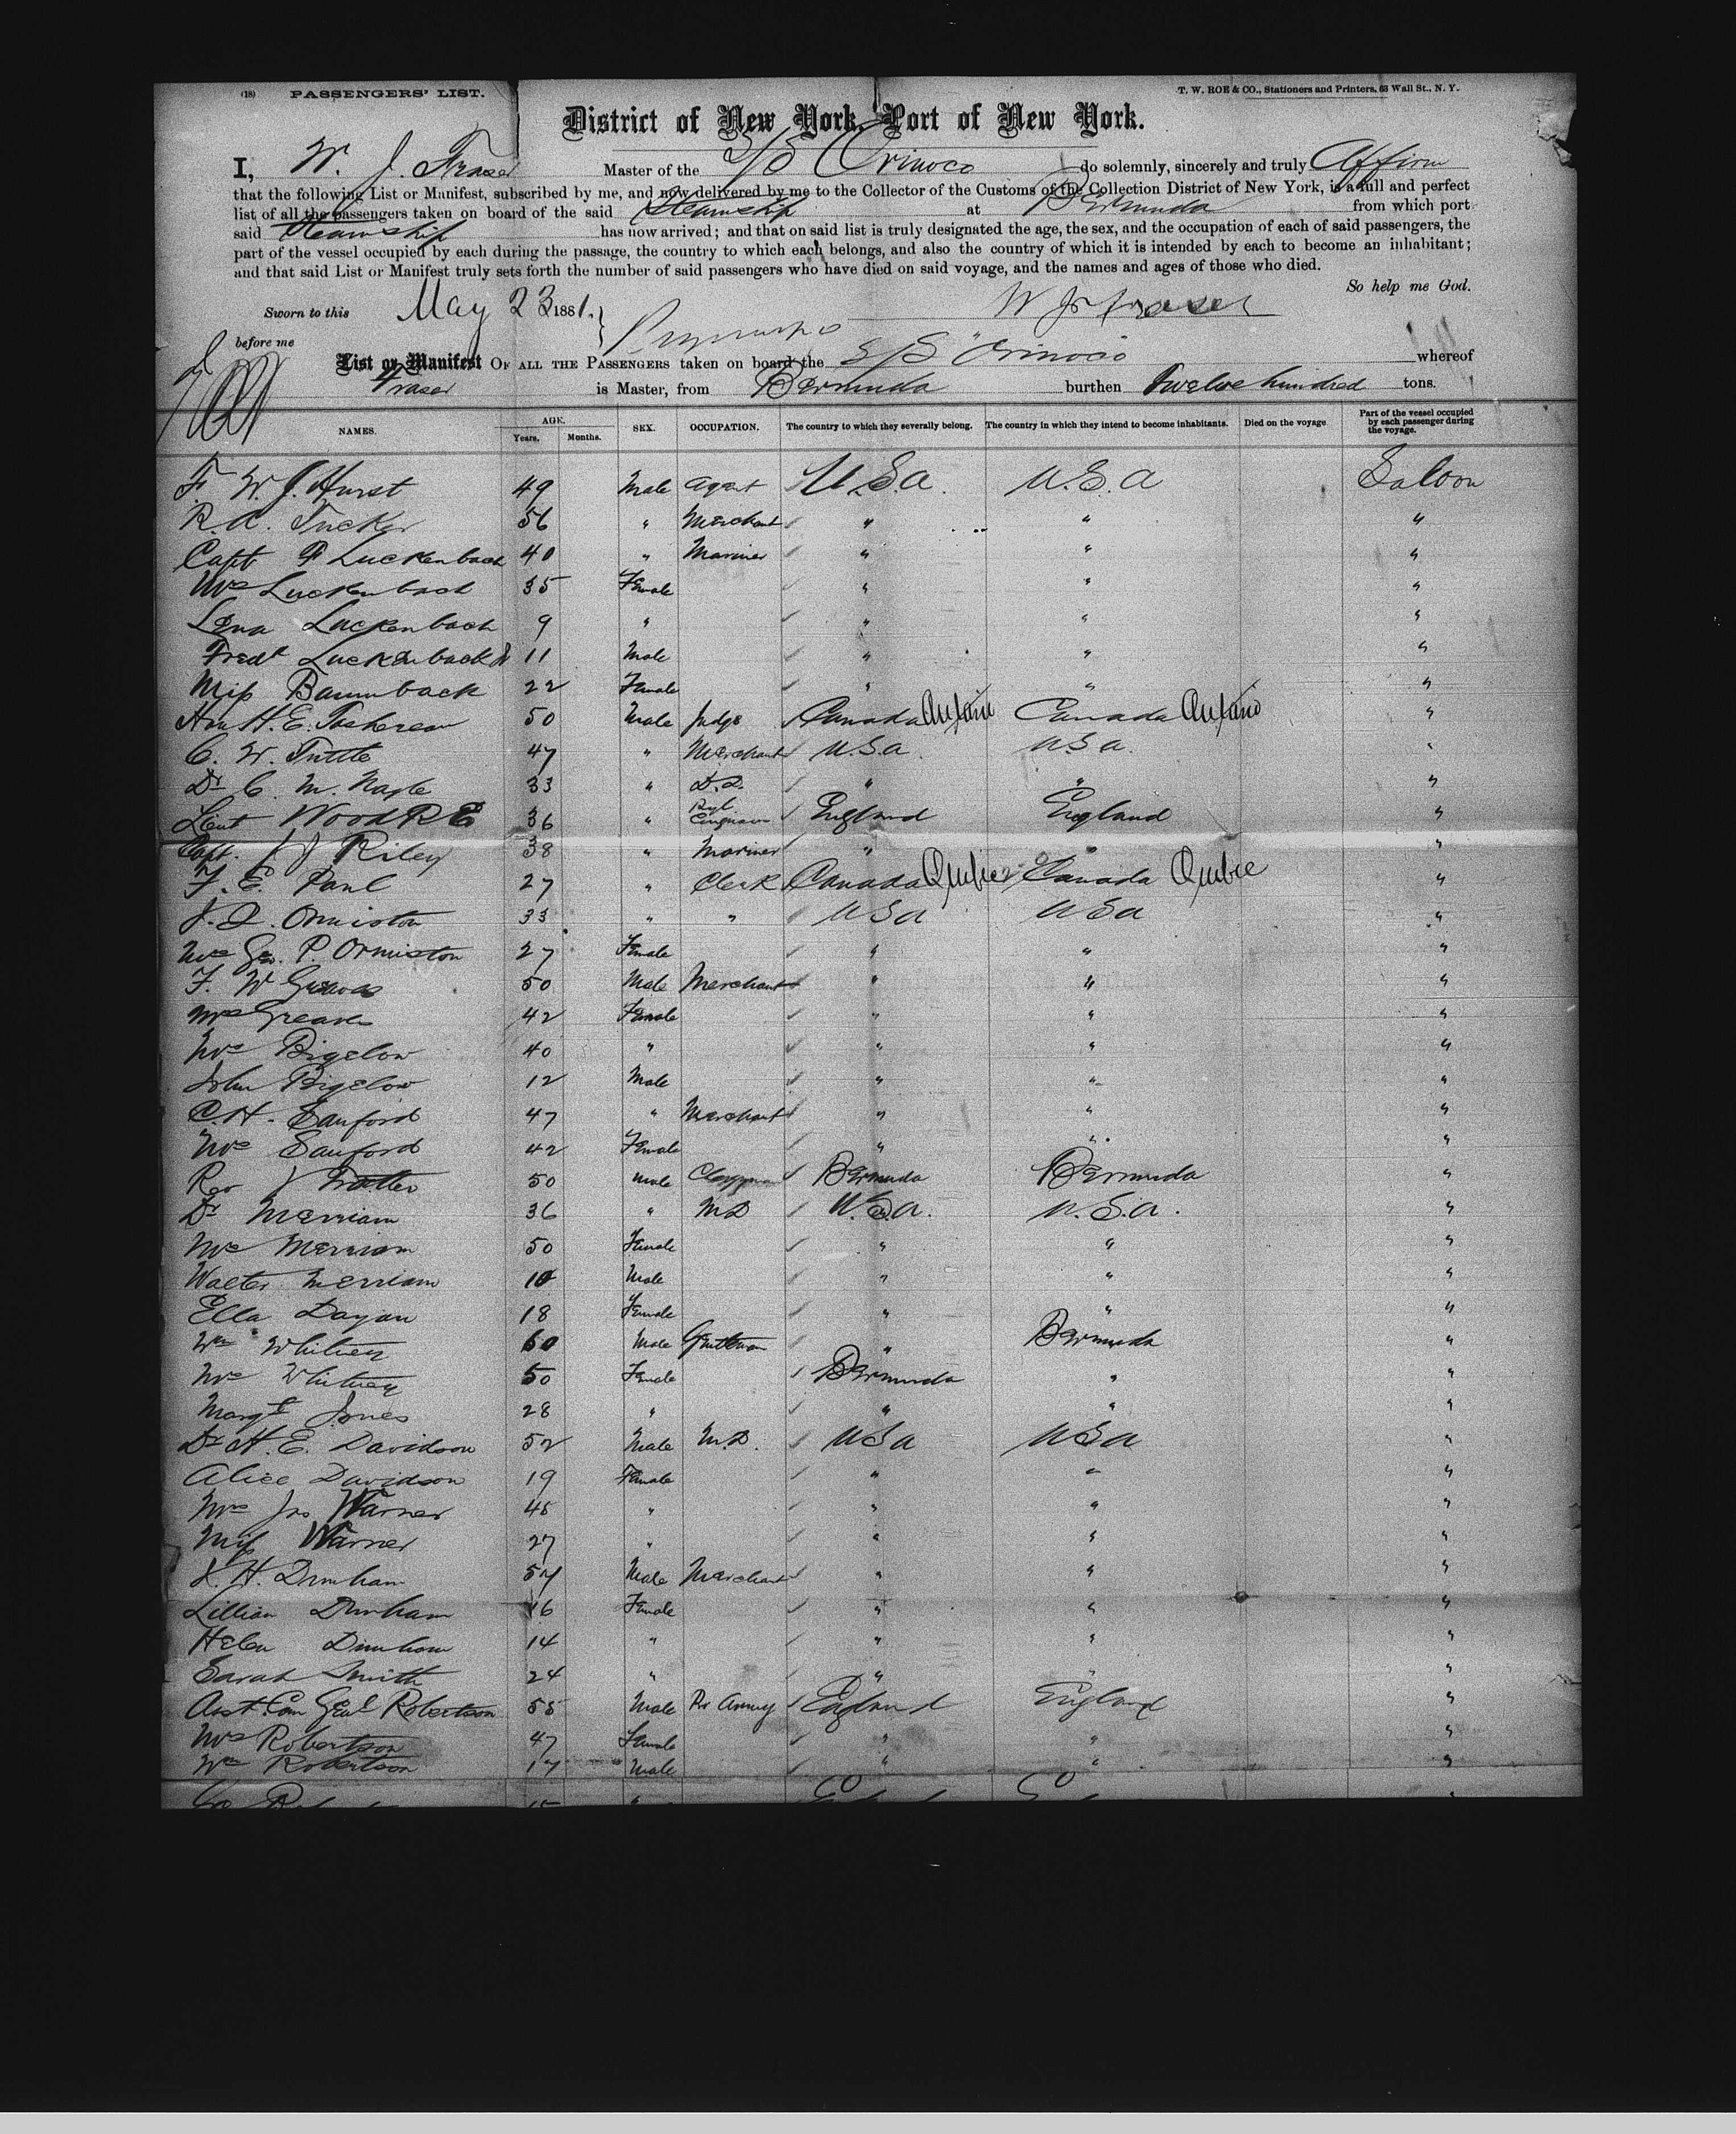 (18) PASSENGERS' LIST.
T. W. ROE & CO., Stationers and Printers, 63 Wall St., N. Y.
District of New York, Port of New York.
I, W. J. Fraser Master of the S/S Orinoco do solemnly, sincerely and truly Affirm
that the following List or Manifest, subscribed by me, and now delivered by me to the Collector of the Customs of the Collection District of New York, is a full and perfect
list of all the passengers taken on board of the said Steamship at Bermuda from which port
said Steamship has now arrived; and that on said list is truly designated the age, the sex, and the occupation of each of said passengers, the
part of the vessel occupied by each during the passage, the country to which each belongs, and also the country of which it is intended by each to become an inhabitant;
and that said List or Manifest truly sets forth the number of said passengers who have died on said voyage, and the names and ages of those who died.
So help me God.
Sworn to this May 23 1881. W J Fraser
before me
List or Manifest OF ALL THE PASSENGERS taken on board the S/S "Orinoco whereof
Fraser is Master, from Bermuda burthen Twelve hundred tons.
NAMES. AGE. Years. Months. SEX. OCCUPATION. The country to which they severally belong. The country in which they intend to become inhabitants. Died on the voyage. Part of the vessel occupied by each passenger during the voyage.
F. W. J. Hurst 49 Male Agent U.S.A. U.S.A Saloon
R. A. Tucker 56 " Merchant " " "
Capt F Luckenbach 40 " Mariner " " "
Mrs Luckenbach 35 Female " " "
Lena Luckenbach 9 " " " "
Fredk Luckenback Jr 11 Male " " "
Miss Baumback 22 Female " " "
Hon H. E. Tashereau 50 Male Judge Canada Canada "
C. W. Tuttle 47 " Merchant U.S.a U.S.a. "
Dr C. M. Nagle 33 " " " "
Lieut Wood R E 36 " Ryl Engineers England England "
Capt. J J Riley 38 " Mariner " " "
F. E. Paul 27 " Clerk Canada Quebec Canada Quebec "
J. Q. Ormiston 33 " " USa USa "
Mrs Geo. P. Ormiston 27 Female " " "
F. W Greaves 50 Male Merchant " " "
Mrs Greaves 42 Female " " "
Mrs Bigelow 40 " " " "
John Bigelow 12 Male " " "
C. H. Sanford 47 " Merchant " " "
Mrs Sanford 42 Female " " "
Rev J 50 Male Clergyman Bermuda Bermuda "
Dr Merriam 36 " MD U.S.a. U.S.a. "
Mrs Merriam 50 Female " " "
Walter Merriam 10 Male " " "
Ella Dayan 18 Female " " "
Wm Whitney 60 Male Gentleman " Bermuda "
Mrs Whitney 50 Female Bermuda " "
Margt Jones 28 " " " "
Dr H. E. Davidson 52 Male M.D. USa USa "
Alice Davidson 19 Female " " "
Mrs Jno Warner 45 " " " "
Miss Warner 27 " " " "
J. H. Dunham 54 Male Merchant " " "
Lillian Dunham 16 Female " " "
Helen Dunham 14 " " " "
Sarah Smith 24 " " " "
Asst. Com Genl Robertson 55 Male Army England England "
Mrs Robertson 47 Female " " "
Wm Robertson 17 Male " " "